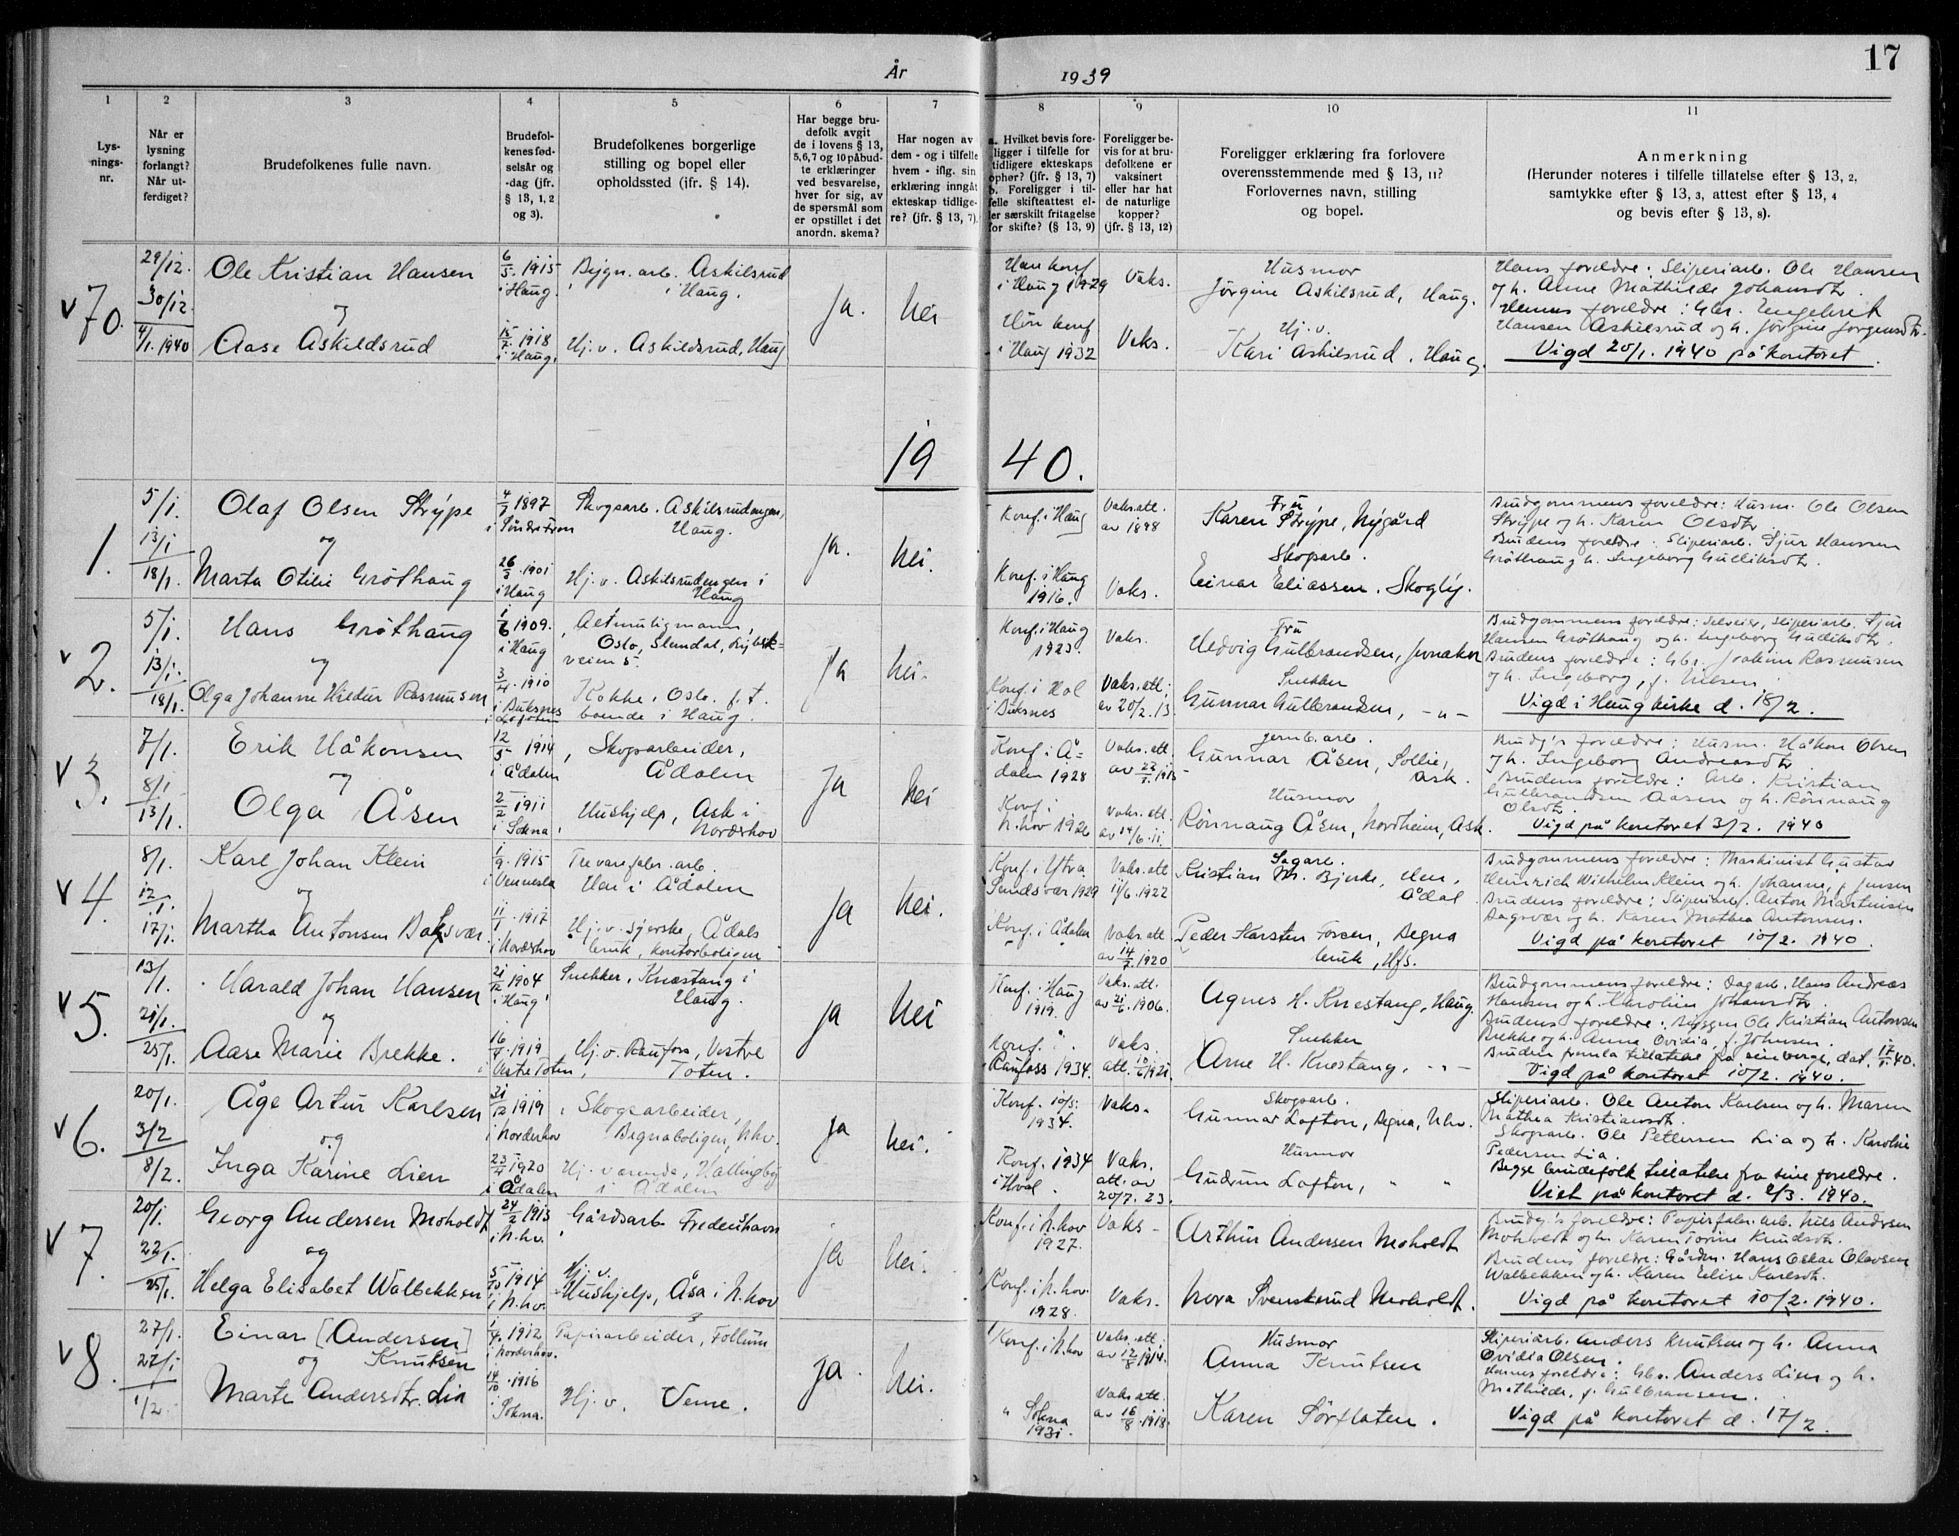 År 1939
17
1 2 3 4 5 6 7 8 9 10 11
Lys-
nings-
nr.
Når er
lysning
forlangt?
Når ut-
ferdiget?
Brudefolkenes fulle navn.
Brudefol-
kenes fød-
selsår og
-dag (jfr.
§ 13, 1, 2
og 3).
Brudefolkenes borgerlige
stilling og bopel eller
opholdssted (jfr. § 14).
Har begge bru-
defolk avgit
de i lovens § 13,
5, 6, 7 og 10 påbud-
te erklæringer
ved besvarelse,
hver for sig, av
de spørsmål som
er opstillet i det
anordn. skema?
Har nogen av
dem - og i tilfelle
hvem - iflg. sin
erklæring inngått
ekteskap tidlige-
re? (jfr. § 13, 7).
a. Hvilket bevis fore-
ligger i tilfelle for
tidligere ekteskaps
ophør? (jfr. § 13, 7)
b. Foreligger i til-
felle skifteattest el-
ler særskilt fritagelse
for skifte? (§ 13, 9)
Foreligger be-
vis for at bru-
defolkene er
vaksinert
eller har hat
de naturlige
kopper?
(jfr. § 13, 12)
Foreligger erklæring fra forlovere
overensstemmende med § 13, 11?
Forlovernes navn, stilling
og bopel.
Anmerkning
(Herunder noteres i tilfelle tillatelse efter § 13, 2,
samtykke efter § 13, 3, attest efter § 13, 4
og bevis efter § 13, 8).
v 70.
29/12.
30/12.
4/1. 1940
Ole Kristian Hansen
og
Aase Askildsrud
6/5. 1915
i Haug.
15/7. 1918
i Haug.
Bygn. arb. Askilsrud
i Haug.
Hj. v. Askildsrud, Haug
Ja.
Nei
Han konf
i Haug 1929
Hun konf
i Haug 1932
Vaks.
Vaks.
Husmor
Jörgine Askilsrud, Haug.
Hj. v.
Kari Askilsrud, Haug.
Hans foreldre: Sliperiarb. Ole Hansen
og h. Anne Mathilde Johansdtr.
Hennes foreldre: Gbr. Engebret
Hansen Askilsrud og h. Jörgine Jorgensdtr.
Vigd 20/1. 1940 på kontoret.
19 40.
1.
5/1.
13/1
18/1.
Olaf Olsen Strype
og
Marta Otilie Gröthaug
1897
i Söndre Fron
26/3. 1901
i Haug
Skogsarb. Askilsrudengen,
Haug.
Hj. v. Askilsrudengen i
Haug
Ja.
Nei.
Konf. i Haug
Konf. i Haug
1916.
Vaks. att.
av 1898
Vaks.
Fru
Karen Strype, Nygård
Skogsarb.
Einar Eliassen. Skogly.
Brudgommens foreldre: Husm. Ole Olsen
Strype og h. Karen Olsdtr.
Brudens foreldre: Sliperiarb. Sjur Hansen
Gröthaug h. Ingeborg Gulliksdtr.
v 2.
5/1.
13/1.
18/1.
Hans Gröthaug
og
Olga Johanne Hildur Rasmussen
1/6 1909.
i Haug
3/4. 1910
i Buksnes
i Lofoten
Altmuligmann,
Oslo, Slemdal,
veien 5
Kokke, Oslo. f. t.
boende i Haug.
Ja
Nei.
Konf. i Haug
1923.
Konf. i Hol
i Buksnes
Vaks.
Vaks. att.
av 20/2. 13
Fru
Hedvig Gulbrandsen, Jevnaker
Snekker
Gunnar Gulbrandsen, -"-
Brudgommens foreldre: Selveier, Sliperiarb. Sjur
Hansen Gröthaug og h. Ingeborg Gulliksdtr.
Brudens foreldre: Gbr. Joakim Rasmussen
og h. Ingeborg, f. Nilsen.
Vigd i Haug kirke d. 18/2.
v 3.
7/1.
8/1
13/1.
Erik Håkonsen
og
Olga Åsen
12/5 1914
i Ådalen
2/2 1911
i Sokna
Skogsarbeider,
Ådalen
Hushjelp, Ask i
Norderhov
Ja
Nei
Konf. i Å-
dalen 1928
Konf. i
N.hov 1926
Vaks. att.
Vaks. att.
av 14/6. 11
jernb. arb.
Gunnar Åsen, Sollie,
Ask.
Husmor
Rönnaug Åsen, Nordheim, Ask.
Brudg's foreldre: Husm. Håkon Olsen
og h. Ingeborg Andreasdtr.
Brudens foreldre: Arb. Kristian
Gulbrandsen Aasen og h. Rönnaug
Olsdtr.
Vigd på kontoret 3/2. 1940
v 4.
8/1.
12/1.
17/1.
Karl Johan Klein
og
Martha Antonsen Baksvær
1/9. 1915
i Vennesla
11/1. 1917
i Norderhov
Trevarefabr. arb.
Hen i Ådalen
Hj. v. Sjerske, Ådals
bruk, kontorboligen
Ja
Nei.
Konf. i Ytre
1929
Konf. i Ådalen
Vaks. att
11/6. 1922
Vaks. att
av 14/7. 1920
Sagarb.
Kristian M. Bjerke, Hen,
Ådal.
Peder Karsten Fossen, Begna
bruk, Hfs.
Brudgommens foreldre: Maskinist Gustav
Heinrich Wilhelm Klein og h. Johanne, f. Jensen
Brudens foreldre: Sliperiarb. Anton Martinsen
Bagsvær og h. Karen Mathea Antonsen.
Vigd på kontoret 10/2. 1940.
v 5.
13/1.
21/1.
25/1.
Harald Johan Hansen
og
Aase Marie Brekke.
21/12 1904
i Haug
16/7. 1919
i Vestre Toten,
Snekker, Knestang i
Haug.
Hj. v. Raufoss, Vestre
Toten.
Ja
Nei
Konf. i Haug
1919.
Konf. i
Raufoss 1934.
Vaks. att.
av 21/6. 1906.
Vaks.
att. 10/6 1921
Agnes H. Knestang, Haug.
Snekker
Arne H. Knestang, -"-
Brudgommens foreldre: Dagarb. Hans Andreas
Hansen og h. Karoline Johansdtr.
Brudens foreldre: Byggm. Ole Kristian Antonsen
Brekke og h. Anna Ovidia, f. Johnsen.
Bruden fremla tillatelse på sin verge, dat. 17/1. 40.
Vigd på kontoret 10/2. 1940.
v 6.
20/1.
3/2
8/2.
Åge Artur Karlsen
og
Inga Karine Lien
21/12 1919
i Norderhov
23/4 1920
i Ådalen
Skogsarbeider,
Begnaboligen, Nhv.
Hj. værende, Hallingby
i Ådalen
Ja
Nei.
Konf. 10/5.
1934.
Konf. 1934
i Hval.
Vaks.
Vaks.
att. av
20/7. 23.
Skogsarb.
Gunnar Loften, Begna, Nhv.
Husmor
Gudrun Loften, " "
Sliperiarb. Ole Anton Karlsen og h. Maren
Mathea Kristiansdtr.
Skogsarb. Ole Pettersen Lia og h. Karoline
Pedersen Lia.
Begge brudefolk tillatelse fra sine foreldre.
Viet på kontoret d. 2/3. 1940.
v 7.
20/1.
22/1.
25/1.
Georg Andersen Moholdt
og
Helga Elisabet Walbekken
24/2 1913
i N.hv.
5/10 1914
i N.hv.
Gårdsarb Fredenshavn
Hj. v.
Hushjelp, Åsa i N.hov
Ja
Nei.
Konf. i N.hov
1927.
Konf. i N.hov
1928.
Vaks.
Vaks.
Arthur Andersen Moholdt
Nora Svensrud Moholdt.
Brudg's foreldre: Papirfabr. arb. Nils Andersen
Moholdt og h. Karen Torine Knudsdtr.
Brudens foreldre: Gårdbr. Hans Oskar Olavsen
Walbekken og h. Karen Elise Karlsdtr.
Vigd på kontoret 10/2. 1940.
v 8.
27/1.
27/1
1/2.
Einar [Andersen]
og Knutsen
Marte Andersdtr. Lia
1/4. 1912
i Norderhov.
14/10. 1916
i Sokna.
Papirarbeider, Follum
Hj. v. Veme.
Ja.
Nei.
Konf. i N.hov
" Sokna
1931.
Vaks. att.
av 12/8 1914.
Vaks. att.
av 16/8. 1918.
Husmor
Anna Knutsen
Karen Sörflaten.
Sliperiarb. Anders Knutsen og h. Anna
Ovidia Olsen.
Hennes foreldre: Gbr. Anders Lien og h.
Mathilde, f. Gulbransen.
Vigd på kontoret d. 17/2.